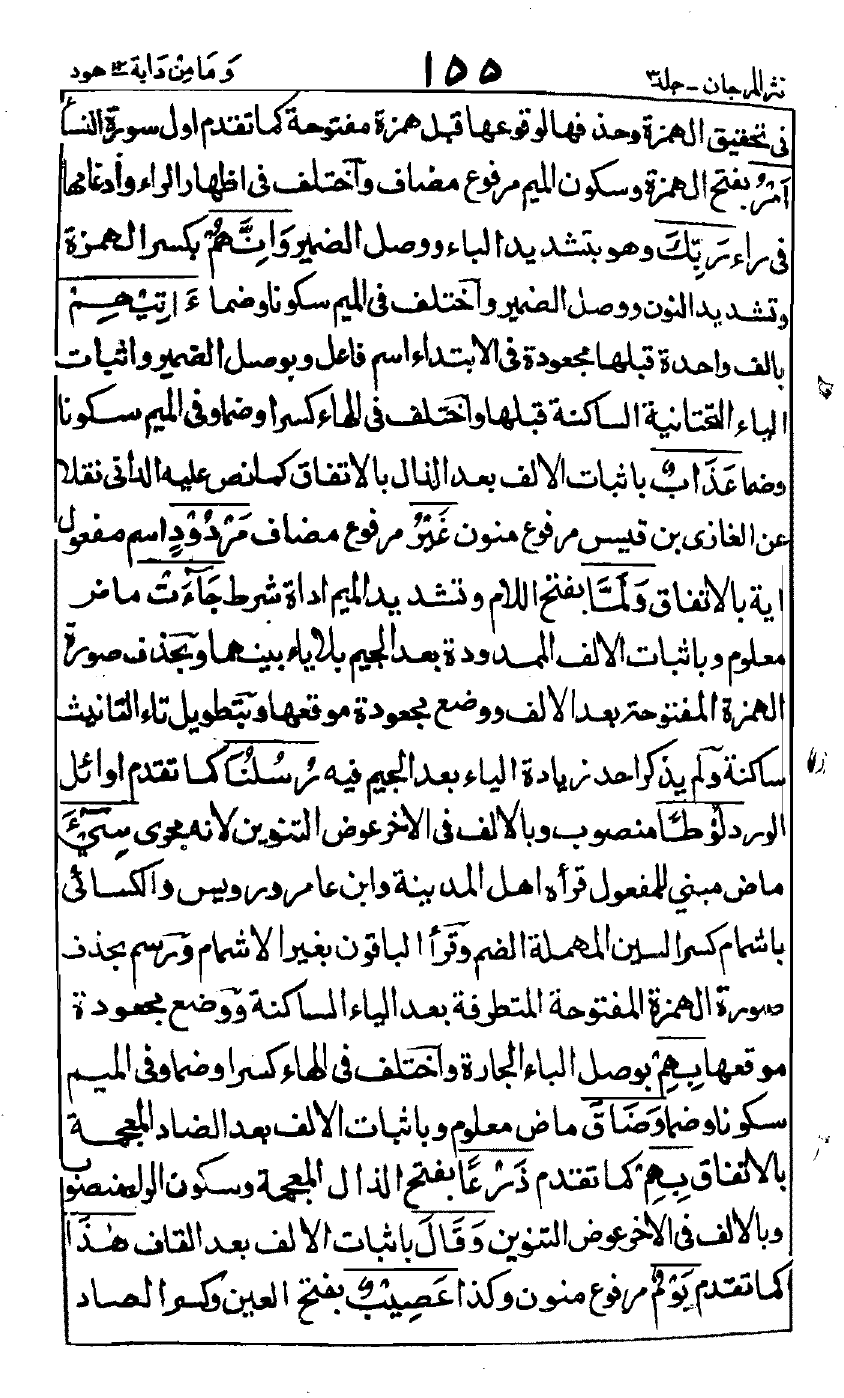 نثر المرجان - جلد ٣ ١٥٥ وَمَا مِنْ دَابة ١٢ هود
فى تحقيق الهمزة وحذفها لوقوعها قبل همزة مفتوحة كما تقدم اول سورة النسا
اَمْرُ بفتح الهمزة وسكون الميم مرفوع مضاف واختلف فى اظهار الراء وأدغامها
فى راء رَبِّكَ وهو بتشديد الباء ووصل الضمير وَاِنَّهُمْ بكسر الهمزة
وتشديد النون ووصل الضمير واختلف فى الميم سكونا وضما ءَاتِيْهِمْ
بالف واحدة قبلها مجعودة فى الابتداء اسم فاعل وبوصل الضمير واثبات
الياء التحتانية الساكنة قبلها واختلف فى الهاء كسرا وضما وفى الميم سكونا
وضما عَذَابٌ باثبات الالف بعد الذال بالاتفاق كما نص عليه الدانى نقلا
عن الغازى بن قيس مرفوع منون غَيْرُ مرفوع مضاف مَرْدُوْدٍ اسم مفعول
اية بالاتفاق وَلَمَّا بفتح اللام وتشديد الميم اداة شرط جَآءَتْ ماض
معلوم وباثبات الالف الممدودة بعد الجيم بلا ياء بينهما وبحذف صورة
الهمزة المفتوحة بعد الالف ووضع مجعودة موقعها وبتطويل تاء التانيث
ساكنة ولم يذكر احد زيادة الياء بعد الجيم فيه رُسُلُنَا كما تقدم اوائل
الورد لُوْطًا منصوب وبالالف فى الاخر عوض التنوين لانه مجرى سِيْٓءَ
ماض مبني للمفعول قرأه اهل المدينة وابن عامر ورويس والكسائى
باشمام كسر السين المهملة الضم وقرأ الباقون بغير الاشمام ورسم بحذف
صورة الهمزة المفتوحة المتطرفة بعد الياء الساكنة ووضع مجعودة
موقعها بِهِمْ بوصل الباء الجارة واختلف فى الهاء كسرا وضما وفى الميم
سكونا وضما وَضَاقَ ماض معلوم وباثبات الالف بعد الضاد المعجمة
بالاتفاق بِهِمْ كما تقدم ذَرْعًا بفتح الذال المعجمة وسكون الراء منصوب
وبالالف فى الاخر عوض التنوين وَقَالَ باثبات الالف بعد القاف هٰذَا
كما تقدم يَوْمٌ مرفوع منون وكذا عَصِيْبٌ بفتح العين وكسر الصاد